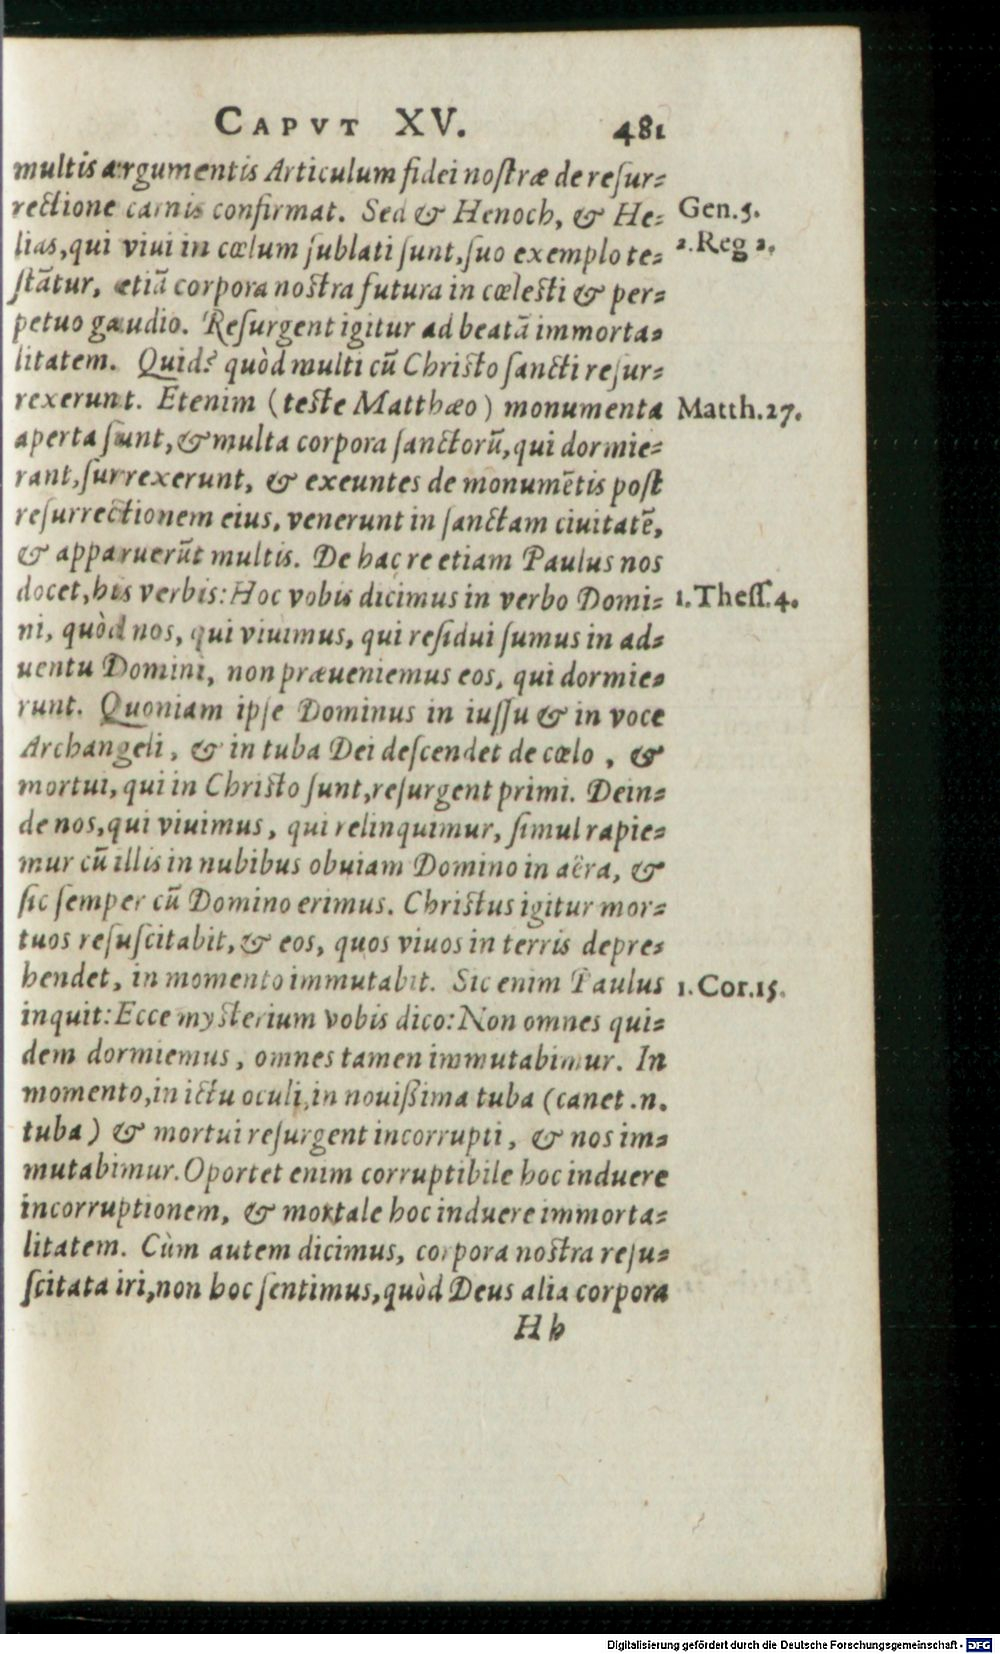 CAPVT XV. 481
multis argumentis Articulum fidei nostræ de resur-
rectione carnis confirmat. Sed & Henoch, & He- Gen.5.
lias, qui viui in cœlum sublati sunt, suo exemplo te- 2.Reg 2.
stãtur, etiã corpora nostra futura in cœlesti & per-
petuo gaudio. Resurgent igitur ad beatã immorta-
litatem. Quid? quòd multi cũ Christo sancti resur-
rexerunt. Etenim (teste Matthæo) monumenta Matth.27.
aperta sunt, & multa corpora sanctorũ, qui dormie-
rant, surrexerunt, & exeuntes de monumẽtis post
resurrectionem eius, venerunt in sanctam ciuitatẽ,
& apparuerũt multis. De hac re etiam Paulus nos
docet, his verbis: Hoc vobis dicimus in verbo Domi- 1.Thess.4.
ni, quòd nos, qui viuimus, qui residui sumus in ad-
uentu Domini, non præueniemus eos, qui dormie-
runt. Quoniam ipse Dominus in iussu & in voce
Archangeli, & in tuba Dei descendet de cœlo, &
mortui, qui in Christo sunt, resurgent primi. Dein-
de nos, qui viuimus, qui relinquimur, simul rapie-
mur cũ illis in nubibus obuiam Domino in aëra, &
sic semper cũ Domino erimus. Christus igitur mor-
tuos resuscitabit, & eos, quos viuos in terris depre-
hendet, in momento immutabit. Sic enim Paulus 1.Cor.15.
inquit: Ecce mysterium vobis dico: Non omnes qui-
dem dormiemus, omnes tamen immutabimur. In
momento, in ictu oculi, in nouißima tuba (canet .n.
tuba) & mortui resurgent incorrupti, & nos im-
mutabimur. Oportet enim corruptibile hoc induere
incorruptionem, & mortale hoc induere immorta-
litatem. Cùm autem dicimus, corpora nostra resu-
scitata iri, non hoc sentimus, quòd Deus alia corpora
Hh
Digitalisierung gefördert durch die Deutsche Forschungsgemeinschaft - DFG